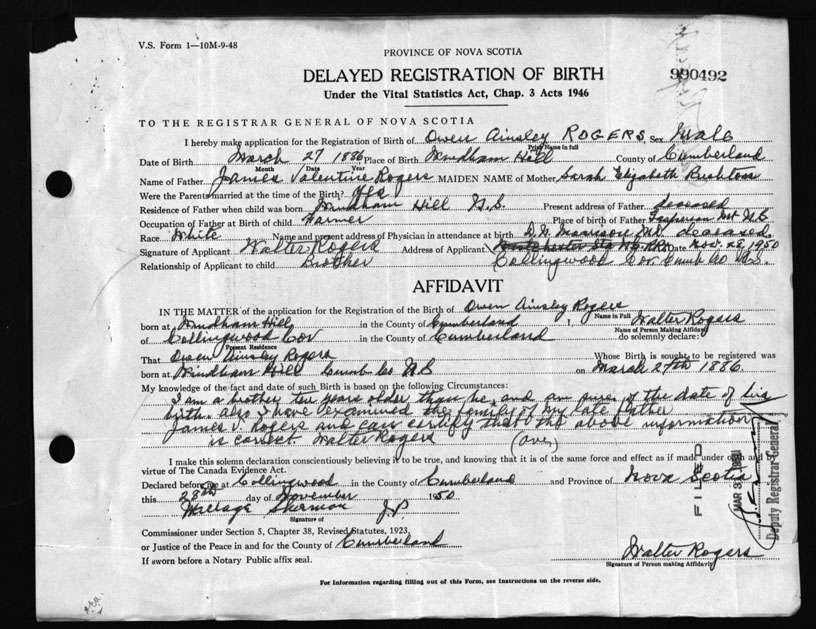 V.S. Form 1—10M-9-48
PROVINCE OF NOVA SCOTIA
DELAYED REGISTRATION OF BIRTH
990492
Under the Vital Statistics Act, Chap. 3 Acts 1946
TO THE REGISTRAR GENERAL OF NOVA SCOTIA
I hereby make application for the Registration of Birth of Owen Ainsley ROGERS, Sex Male
Print Name in full
Date of Birth March 27 1886 Place of Birth Windham Hill County of Cumberland
Month Date Year
Name of Father James Valentine Rogers MAIDEN NAME of Mother Sarah Elizabeth
Were the Parents married at the time of Birth? Yes
Residence of Father when child was born Windham Hill N.S. Present address of Father deceased
Occupation of Father at Birth of child Farmer Place of birth of Father Mt N.S.
Race White Name and present address of Physician in attendance at birth Morrison MD deceased
Signature of Applicant Walter Rogers Address of Applicant Date Nov. 28, 1950
Relationship of Applicant to child Brother Collingwood Cor. Cumb Co N.S.
AFFIDAVIT
IN THE MATTER of the application for the Registration of the Birth of Owen Ainsley Rogers
Name in Full
born at Windham Hill in the County of Cumberland I, Walter Rogers
Name of Person Making Affidavit
of Collingwood Cor in the County of Cumberland do solemnly declare:
Present Residence
That Owen Ainsley Rogers Whose Birth is sought to be registered was
born at Windham Hill Cumb Co N S on March 27th 1886.
My knowledge of the fact and date of such Birth is based on the following Circumstances:
I am a brother ten years older than he, and am sure of the date of his
birth. also I have examined the family of my late father
James V. Rogers and can certify that the above information
is correct. Walter Rogers (over)
I make this solemn declaration conscientiously believing it to be true, and knowing that it is of the same force and effect as if made under oath and by
virtue of The Canada Evidence Act.
Declared before me at Collingwood in the County of Cumberland and Province of Nova Scotia
this 28th day of November 1950
Sherman J.P
Signature of
Commissioner under Section 5, Chapter 38, Revised Statutes, 1923,
or Justice of the Peace in and for the County of Cumberland
If sworn before a Notary Public affix seal.
Walter Rogers
Signature of Person making Affidavit
For Information regarding filling out of this Form, see Instructions on the reverse side.
FILED
Deputy Registrar General